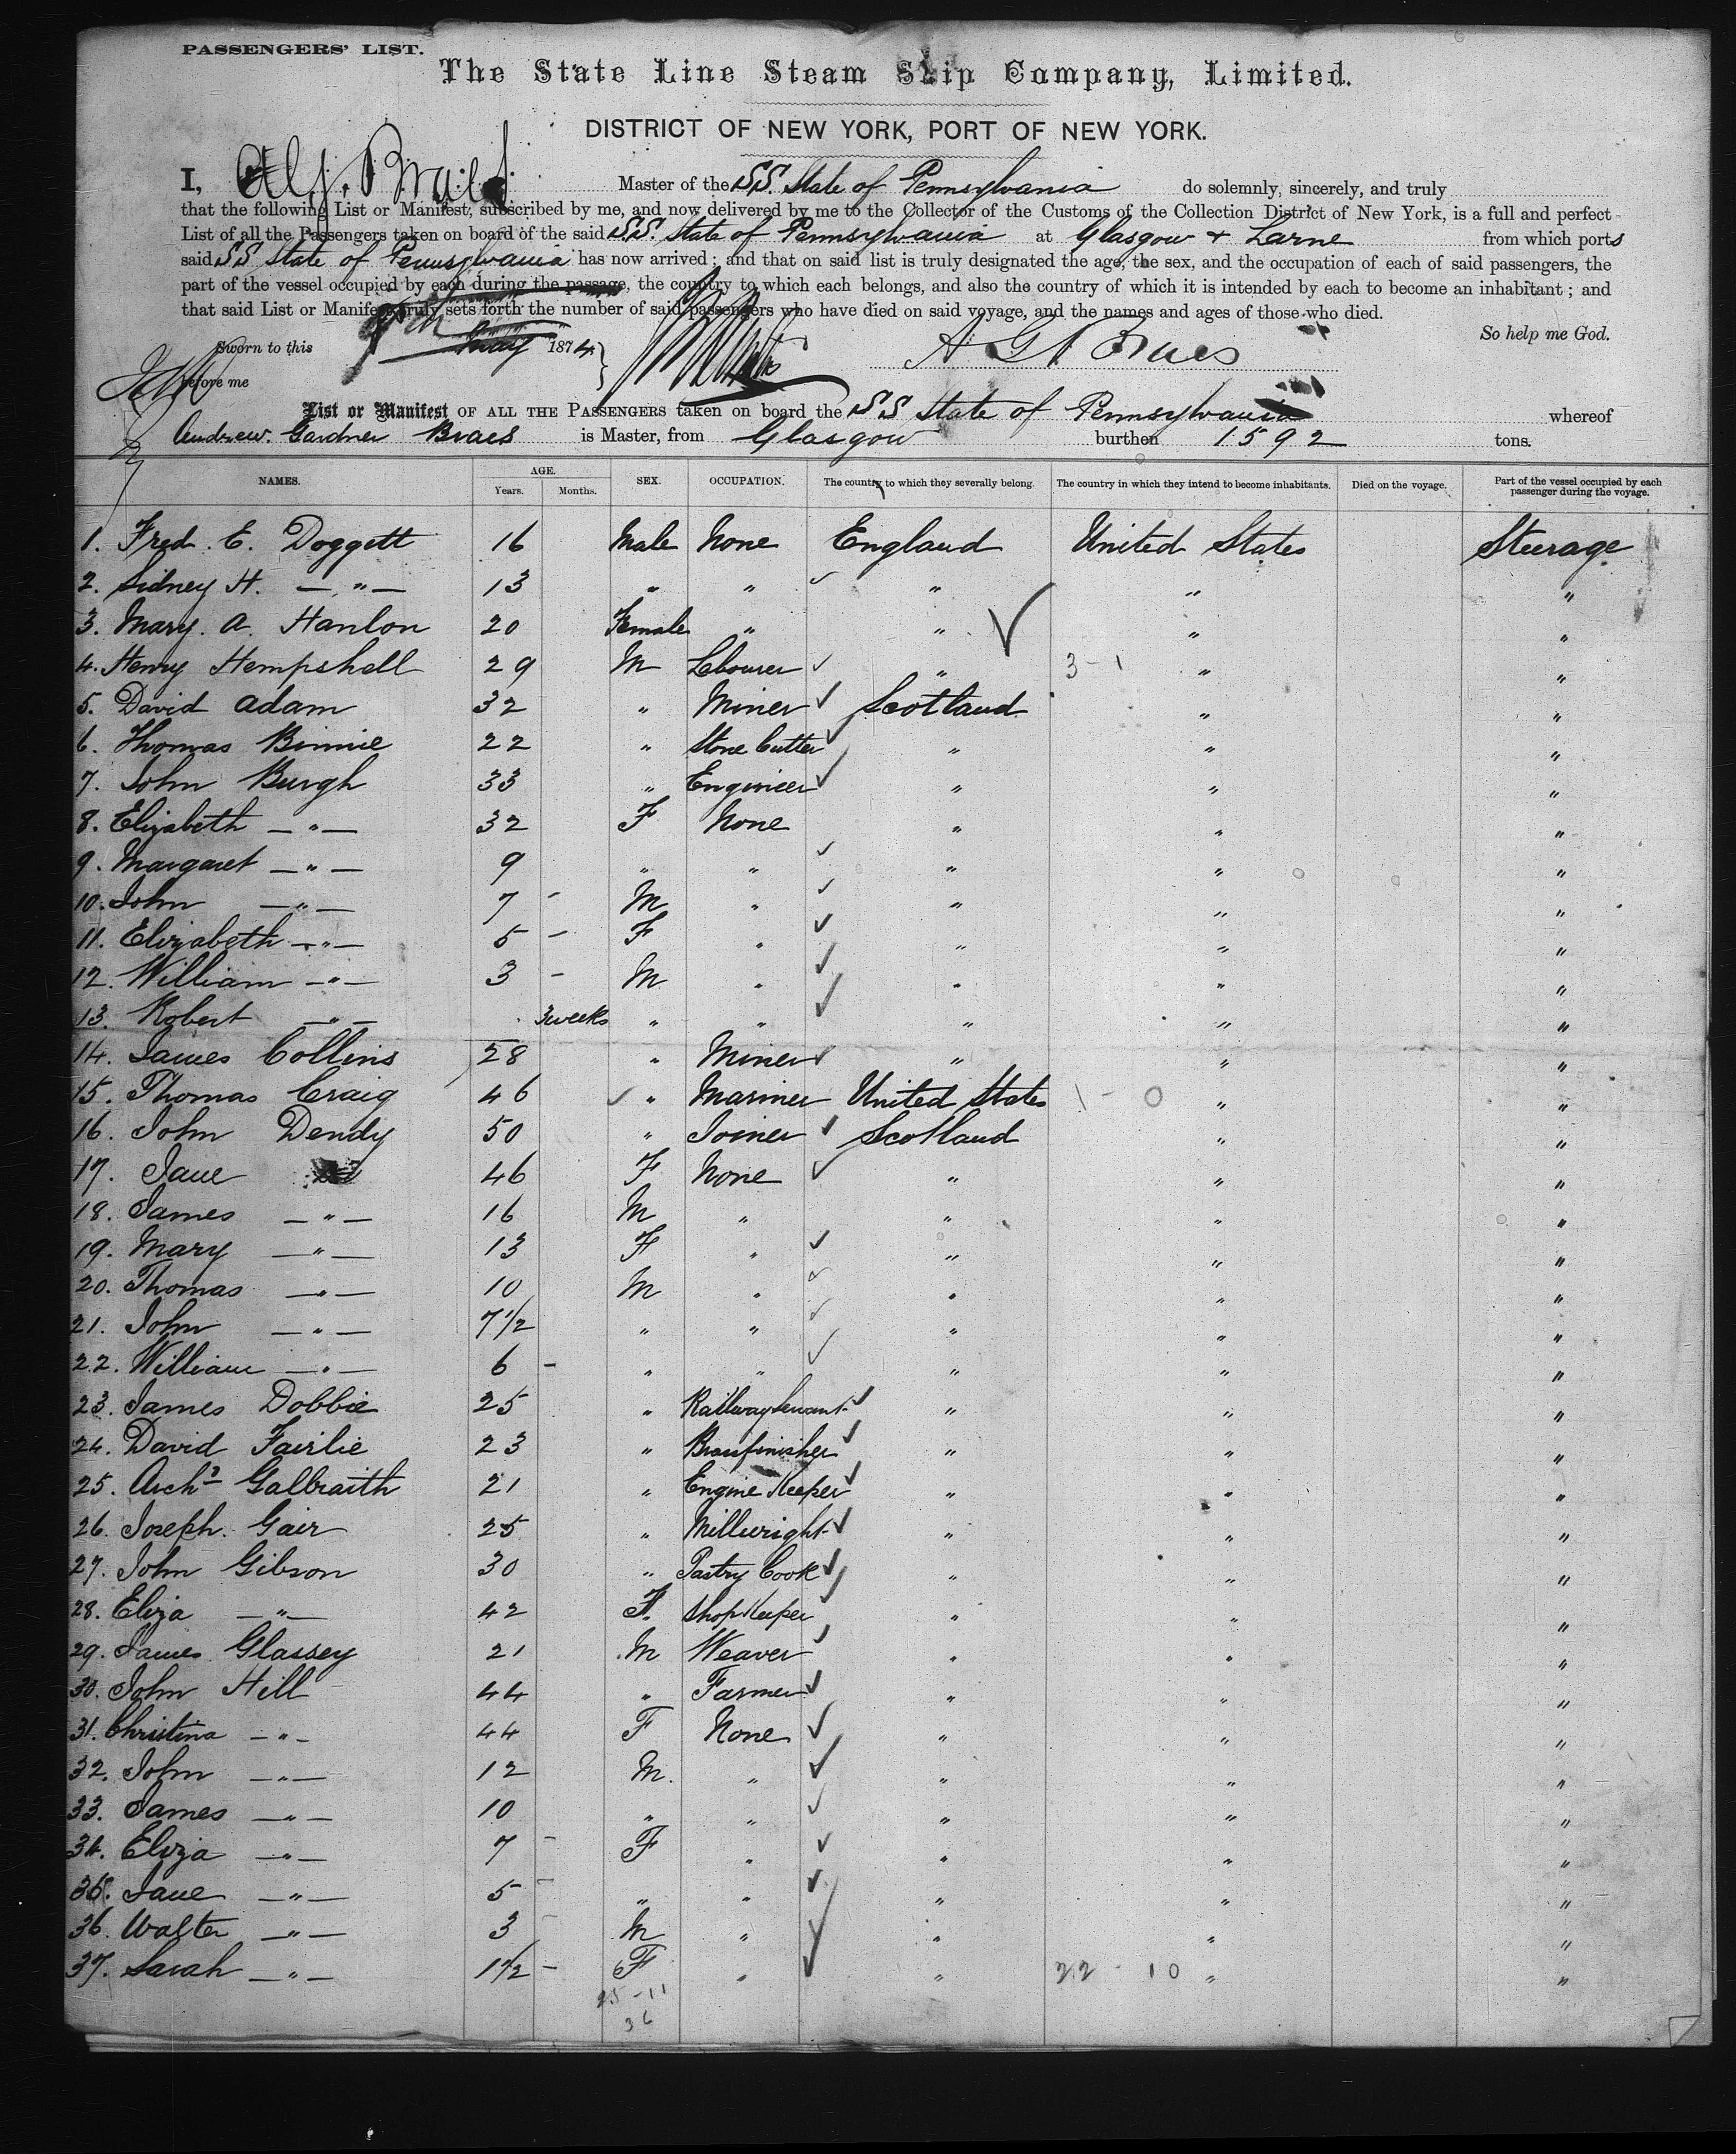 PASSENGERS' LIST.
The State Line Steam Ship Company, Limited.
DISTRICT OF NEW YORK, PORT OF NEW YORK.
I, Master of the SS. State of Pennsylvania do solemnly, sincerely, and truly
that the following List or Manifest, subscribed by me, and now delivered by me to the Collector of the Customs of the Collection District of New York, is a full and perfect
List of all the Passengers taken on board of the said SS. State of Pennsylvania at Glasgow + Larne from which ports
said SS State of Pennsylvania has now arrived; and that on said list is truly designated the age, the sex, and the occupation of each of said passengers, the
part of the vessel occupied by each during the passage, the country to which each belongs, and also the country of which it is intended by each to become an inhabitant; and
that said List or Manifest truly sets forth the number of said passengers who have died on said voyage, and the names and ages of those who died.
So help me God.
Sworn to this May 1874
before me
A G Braes
List or Manifest OF ALL THE PASSENGERS taken on board the SS State of Pennsylvania whereof
Andrew. Gardner Braes is Master, from Glasgow burthen 1592 tons.
NAMES. AGE. Years. Months. SEX. OCCUPATION. The country to which they severally belong. The country in which they intend to become inhabitants. Died on the voyage. Part of the vessel occupied by each passenger during the voyage.
1. Fred. E. Doggett 16 Male None England United States Steerage
2. Sidney H. — " — 13 " " " " "
3. Mary. A. Hanlon 20 Female " " " "
4. Henry Hempshell 29 M Labourer " 3 - 1 " "
5. David Adam 32 " Miner Scotland " "
6. Thomas Binnie 22 " Stone Cutter " " "
7. John Burgh 33 " Engineer " " "
8. Elizabeth — " — 32 F None " " "
9. Margaret — " — 9 " " " " "
10. John — " — 7 - M " " " "
11. Elizabeth — " — 5 - F " " " "
12. William — " — 3 - M " " " "
13. Robert — " — 3 weeks " " " " "
14. James Collins 28 " Miner " " "
15. Thomas Craig 46 " Mariner United States 1 - 0 " "
16. John Dendy 50 " Joiner Scotland " "
17. Jane 46 F None " " "
18. James — " — 16 M " " " "
19. Mary — " — 13 F " " " "
20. Thomas — " — 10 M " " " "
21. John — " — 7 1/2 " " " " "
22. William — " — 6 - " " " " "
23. James Dobbie 25 " Railway Servant " " "
24. David Fairlie 23 " Brassfinisher " " "
25. Archd Galbraith 21 " Engine Keeper " " "
26. Joseph. Gair 25 " Millwright " " "
27. John Gibson 30 " Pastry Cook " " "
28. Eliza — " — 42 F. Shop Keeper " " "
29. James Glassey 21 M Weaver " " "
30. John Hill 44 " Farmer " " "
31. Christina — " — 44 F None " " "
32. John — " — 12 M. " " " "
33. James — " — 10 " " " " "
34. Eliza — " — 7 - F " " " "
35. Jane — " — 5 - " " " " "
36. Walter — " — 3 - M " " " "
37. Sarah — " — 1 1/2 - F " " 22 - 10 " "
25 - 11
36